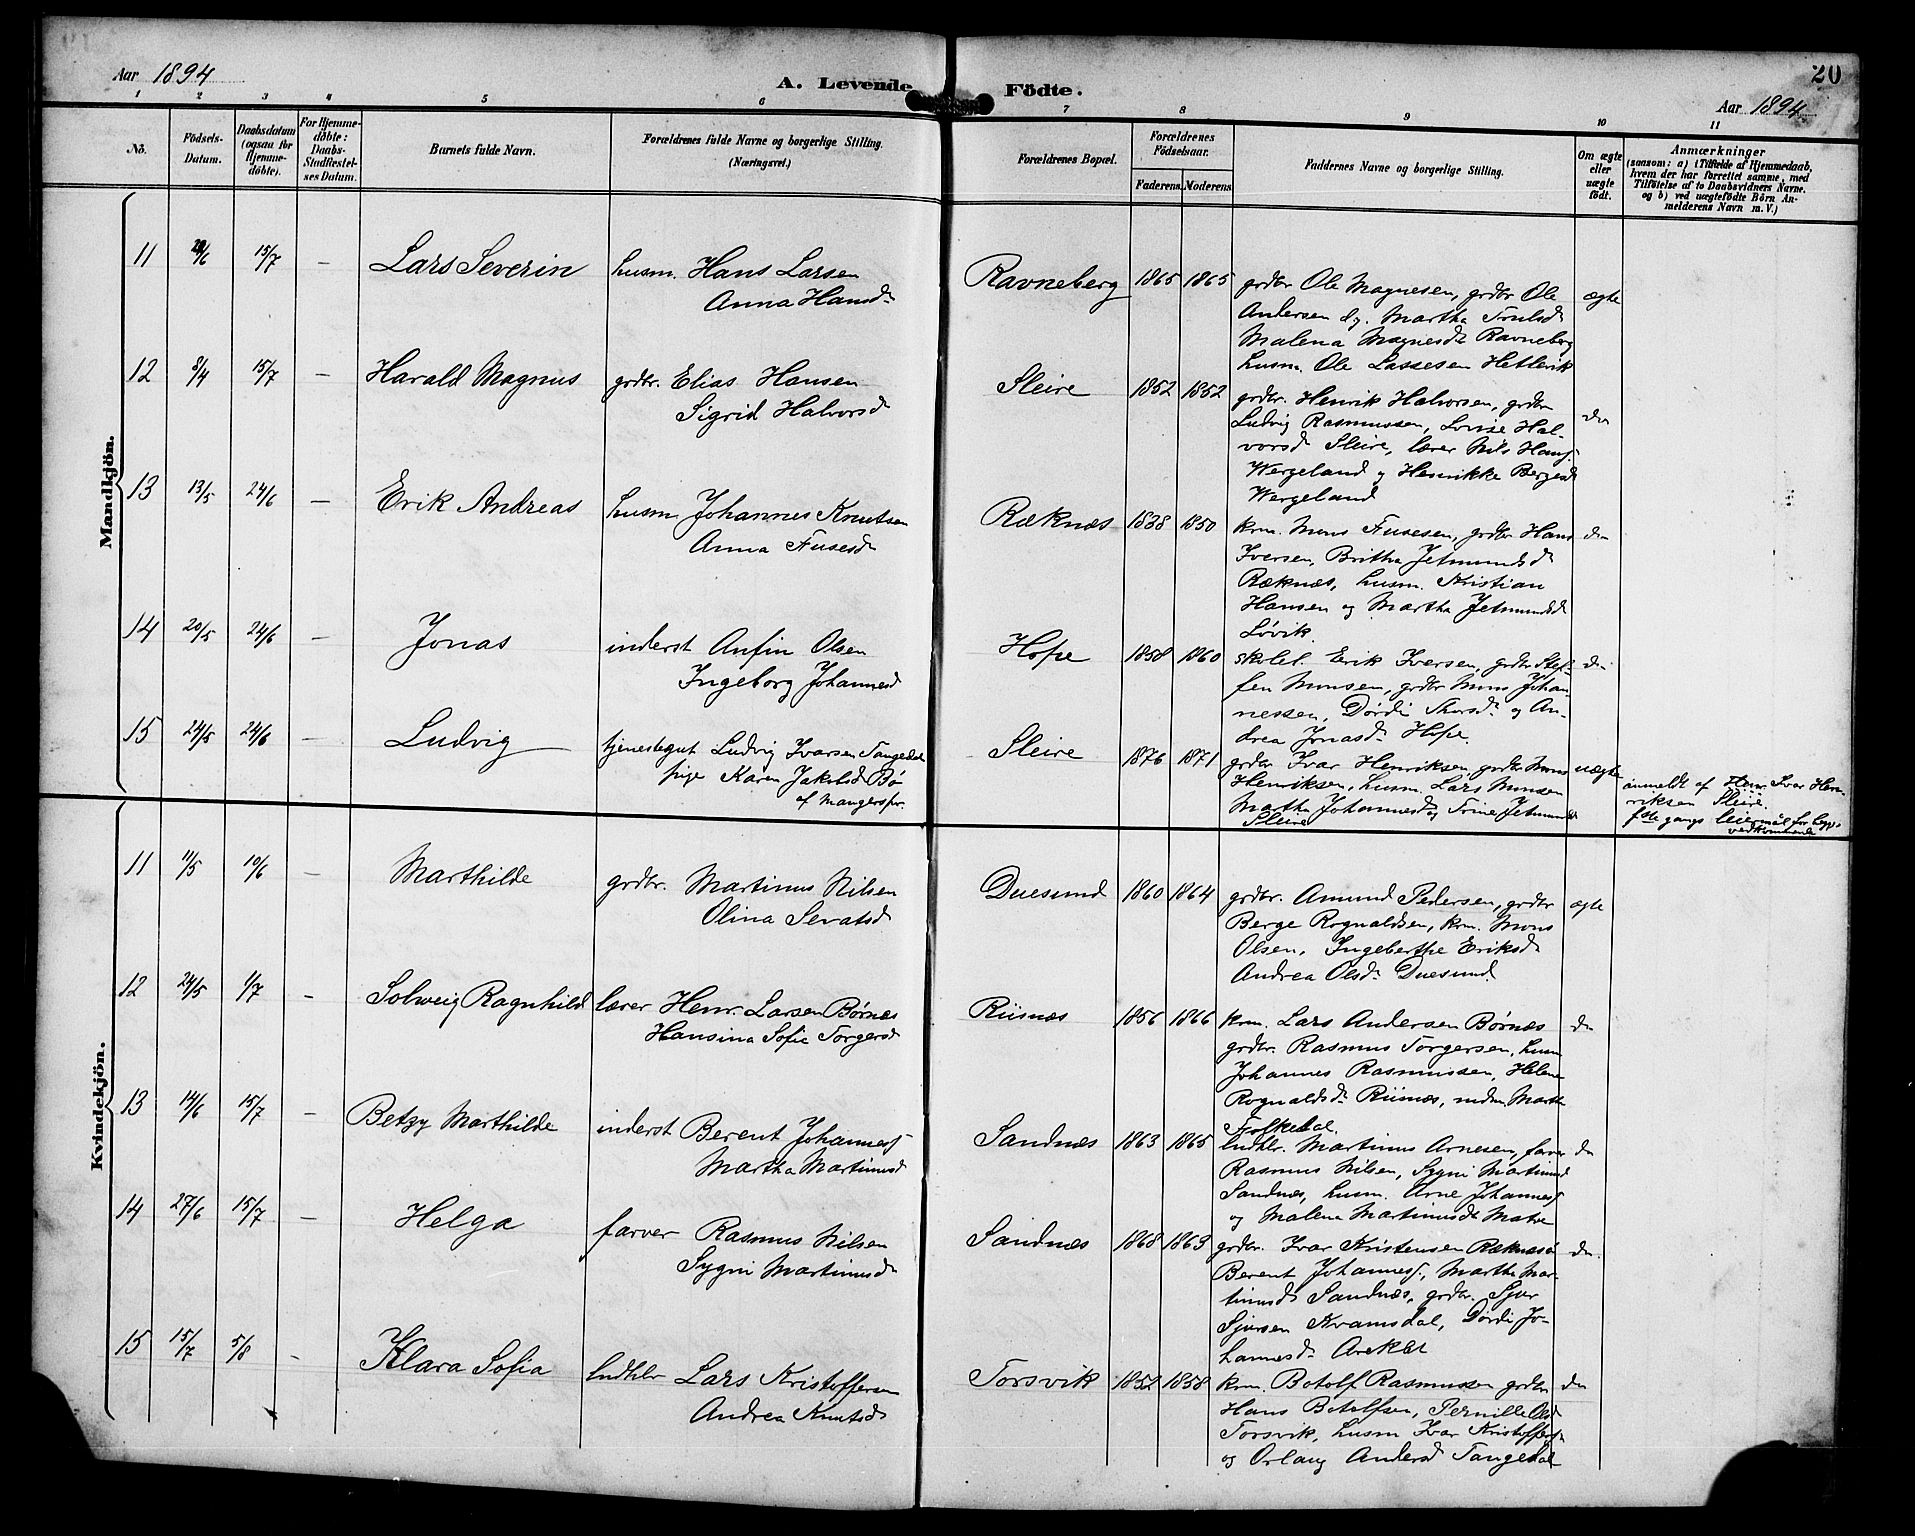 Aar 1894
A. Levende Födte.
20
Aar 1894
1 2 3 4 5 6 7 8 9 10 11
No.
Födsels-Datum.
Daabsdatum (ogsaa for Hjemme-döbte).
For Hjemme-döbte: Daabs-Stadfæstel-ses Datum.
Barnets fulde Navn.
Forældrenes fulde Navne og borgerlige Stilling. (Næringsvei.)
Forældrenes Bopæl.
Forældrenes Födselsaar.
Faderens. Moderens.
Faddernes Navne og borgerlige Stilling.
Om ægte eller uægte födt.
Anmærkninger
(saasom: a) i Tilfælde af Hjemmedaab,
hvem der har forrettet samme, med
Tilföielse af to Daabsvidners Navne.
og b) ved uægtefödte Börn An-
melderens Navn m. V.)
Mandkjön.
11 15/7 — Lars Severin husm. Hans Larsen
Anna Hansd.
Ravneberg 1865 1865 grdbr Ole Magnesen, grdbr Ole ægte
Andersen og Martha Trulsd.
Malena Magnesd. Ravneberg
husm. Ole Lassesen Hetlevik
12 8/4 15/7 — Harald Magnus grdbr. Elias Hansen
Sigrid Halvorsd
Sleire 1852 1852 grdbr. Henrik Halvorsen, grdbr do
Ludvig Rasmussen, Lovise Hal-
vorsd Sleire, lærer Nils Hansj.
Wergeland og Henrikke Bergesd
Wergeland
13 13/5 24/6 — Erik Andreas husm Johannes Knutsen
Anna Fusesd.
Ræknæs 1838 1850 krm. Mons Fusesen, grdbr Hans do
Iversen, Britha Jetmundsd.
Ræknæs, husm. Kristian
Hansen og Martha Jetmundsd
Lövik.
14 20/5 24/6 — Jonas inderst Anfin Olsen
Ingeborg Johannesd
Hope 1858 1860 skolel. Erik Iversen, grdbr Stef- do
fen Monsen, grdbr Mons Johan-
nessen, Dørdi og An-
drea Jonasd. Hope.
15 24/5 24/6 — Ludvig tjenestegut Ludvig Ivarsen Tangedal
pige Karen Jakobsd Bø
af Mangers pr.
Sleire 1876 1871 grdbr Ivar Henriksen, grdbr Mons uægte
Henriksen, husm. Lars Monsen
Martha Johannesd og Trine Jetmundsd
Sleire
anmeldt af Ivar Hen-
riksen Sleire.
1ste gangs leiermål for begge
vedkommende
Kvindekjön.
11 11/5 10/6 — Marthilde grdbr. Martinus Nilsen
Olina Sevatsd
Duesund 1860 1864 grdbr. Amund Pedersen, grdbr ægte
Berge Rognaldsen, krm. Mons
Olsen, Ingeberthe Eriksd
Andrea Olsd. Duesund.
12 24/5 1/7 — Solveig Ragnhild lærer Henr. Larsen Børnes
Hansina Sofie Torgersd
Riisnæs 1856 1866 krm. Lars Andersen Børnæs do
grdbr. Rasmus Torgersen, husm
Johannes Rasmussen, Helene
Rognaldsd. Riisnæs, Martha
Folkedal.
13 14/6 15/7 — Betzy Marthilde inderst Berent Johannesj.
Martha Martinusd
Sandnæs 1863 1865 lndhlr. Martinus Arnesen, farver do
Rasmus Nilsen, Sygni Martinusd
Sandnæs, husm. Arne Johannesj.
og Malena Martinusd. Matre
14 27/6 15/7 — Helga farver Rasmus Nilsen
Sygni Martinusd.
Sandnæs 1868 1863 grdbr. Ivar Kristensen Ræknæs do
Berent Johannesj., Martha Mar-
tinusd Sandnæs, grdbr. Sjur
Sjursen Kvamsdal, Dördi Jo-
hannesd.
15 15/7 5/8 — Klara Sofia lndhlr Lars Kristoffersen
Andrea Knutsd
Torsvik 1852 1858 krm. Botolf Rasmussen grdbr do
Hans Botolfsen, Pernille Olsd
Torsvik, husm Ivar Kristoffers.
og Orlaug Andersd Tangedal